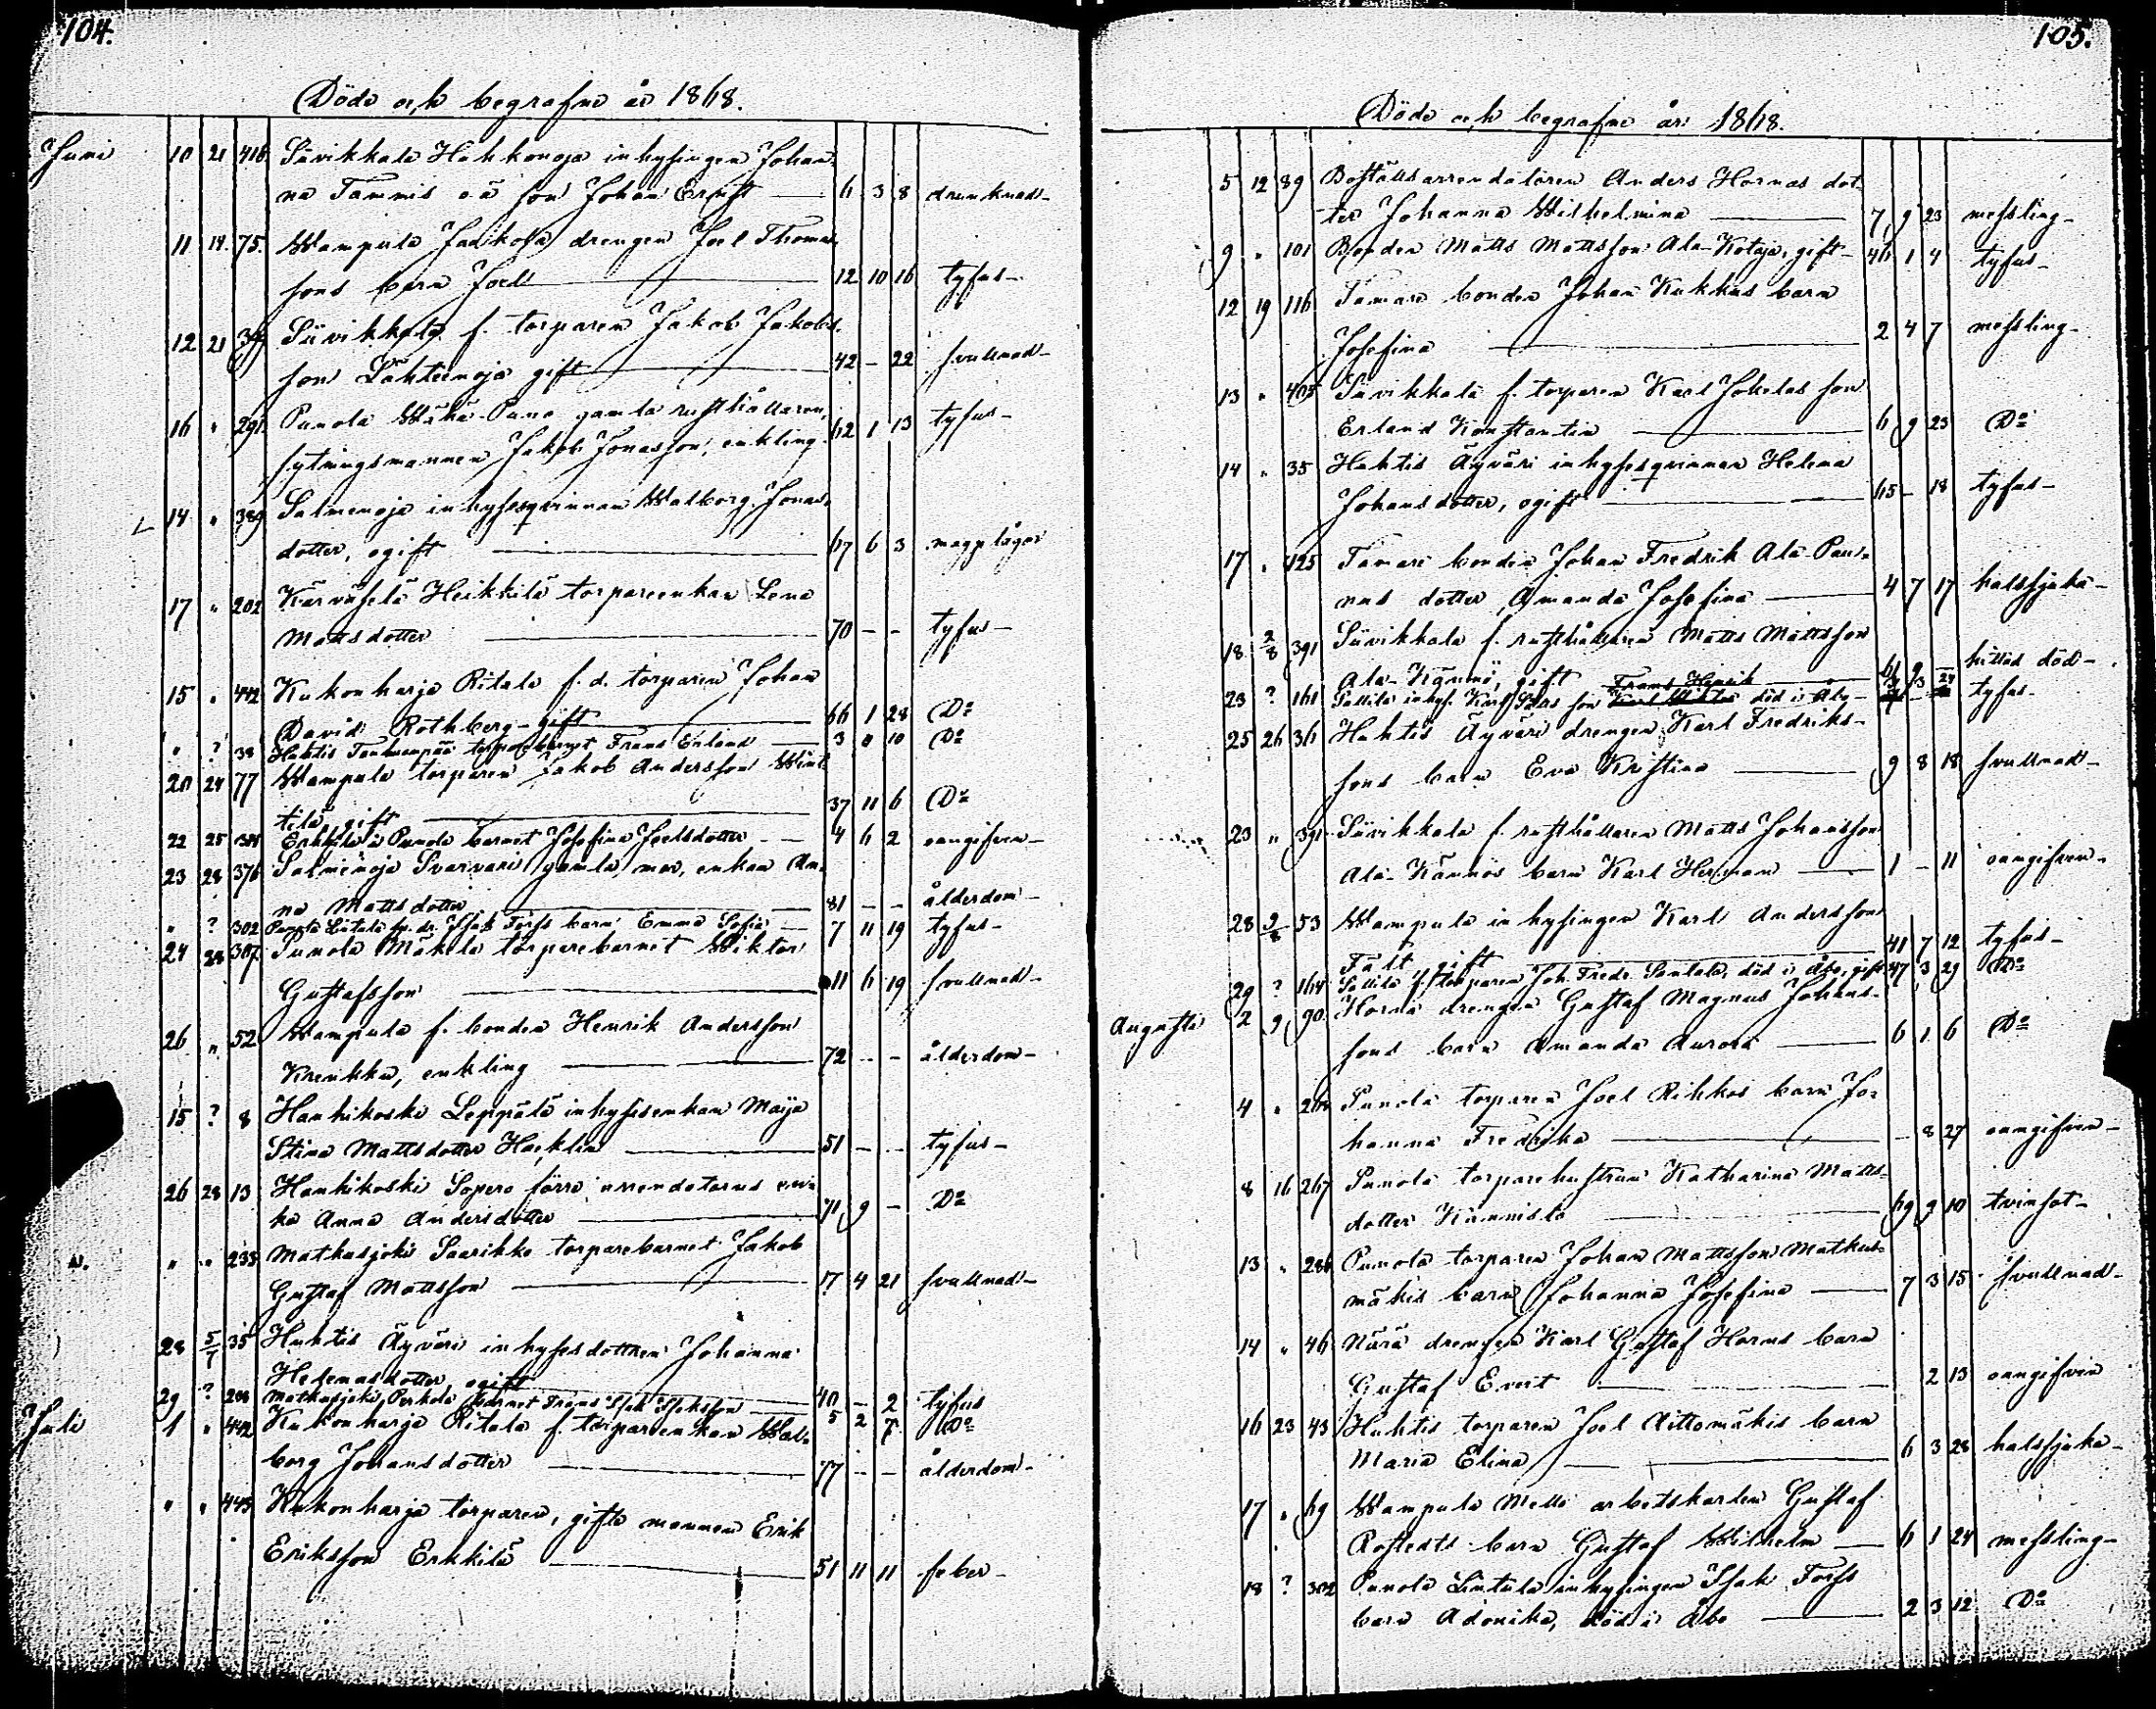 104.
Döde och begrafne år 1868.
Juni 10 21 416. Sävikkala Hahkonoja inhysingen Johan-
na Tammis o.ä son Johan Ernst 6 3 8 drunknad
11 14. 75. Wampula Jaakola drengen Joel Thomas-
sons barn Joel 12 10 16 tyfus
12 21 Sävikkala f. torparen Jakob Jakobs-
son Lähteenoja gift 42 - 22 svullnad
16 " 291 Punola Wähä-Puno gamla rusthållaren,
sytningsmannen Jakob Jonasson, enkling 62 1 13 tyfus
14 " 389 Salmenoja inhysesqvinnan Walborg Jonas-
dotter, ogift 67 6 3 magplågor
17 " 202 Kärväselä Heikkilä torpareenkan Lena
Mattsdotter 70 - - tyfus
15 " 442 Kukonharja Ritala f.d. torparen Johan
David Rothberg gift 66 1 28 Do
" ? 38 Huhtis Tanhuanpää torparebarnet Frans Erland 3 11 10 Do
20 24 77 Wampula torparen Jakob Andersson Wänt-
tilä gift 37 11 6 Do
22 25 Erkkilä i Punola barnet Josefina Joelsdotter 4 6 2 oangifven
23 28 376 Salmenoja Svarvars gamla mor, enkan An-
na Mattsdotter 81 - - ålderdom
" ? 302 Punola Lintula Isak Forss barn Emma Sofia 7 11 19 tyfus
24 28 307 Punola Mäkelä torparebarnet Wiktor
Gustafsson 11 6 19 svullnad
26 " 52 Wampula f. bonden Henrik Andersson
Krenkku, enkling 72 - - ålderdom
15 ? 8 Hanhikoski Leppälä inhysesenkan Maija
Stina Mattsdotter Hacklin 51 - - tyfus
26 28 13 Hanhikoski Sopero förre arrendatorns en-
ka Anna Andersdotter 71 9 - Do
" " 233 Matkusjoki Saarikko torparebarnet Jakob
Gustaf Mattsson 7 4 21 svullnad
28 5/7 35 Huhtis Äyväri inhysesdottren Johanna
Helenasdotter ogift 40 - 2 tyfus
29 ? Matkusjoki Perkola barnet Frans Isak Isaksson 5 2 7 Do
Juli 1 " 442 Kukonharja Ritala f. torpareenkan Wal-
borg Johansdotter 77 - - ålderdom
" " 443 Kukonharja torparen, gifte mannen Erik
Eriksson Erkkilä 51 11 11 feber
105.
Döde och begrafne år 1868.
5 12 89 Boställsarrendatoren Anders Hornas dot-
ter Johanna Wilhelmina 7 9 23 messling
9 " 101 Bonden Matts Mattsson Ala-Kotaja, gift 46 1 4 tyfus
12 19 116 Tamare bonden Johan Kukkus barn
Josefina 2 4 7 messling
13 " 405 Sävikkala f. torparen Karl Jokelas son
Erland Konstantin 6 9 23 Do
14 " 35 Huhtis Äyväri inhysesqvinnan Helena
Johansdotter, ogift 65 - 18 tyfus
17 " 125 Tamare bonden Johan Fredrik Ala-Pau-
nus dotter Amanda Josefina 4 7 17 halssjuka
18 2/8 391 Sävikkala f. rusthållaren Matts Mattsson
Ala-Kännö, gift 61 9 hittad död
23 ? 161 Sallila inhys. Karl son Frans Henrik död i 3 27 tyfus
25 26 36 Huhtis Äyväri drengen Karl Fredriks-
sons barn Eva Kristina 9 8 18 svullnad
23 " 391 Sävikkala f. rusthållaren Matts Johansson
Ala-Kännös barn Karl Herman 1 - 11 oangifven
28 2/8 53 Wampula inhysingen Karl Andersson
Fält gift 41 7 12 tyfus
29 ? 164 Sallila f. torparen Joh. Fredr. Santala, död i Åbo, gift 47 3 29 Do
Augusti 2 9 90. Horna drengen Gustaf Magnus Johans-
sons barn Amanda Aurora 6 1 6 Do
4 " Punola torparen Joel Rihkos barn Jo-
hanna Fredrika - 8 27 oangifven
8 16 267 Punola torparehustrun Katharina Matts-
dotter Kännistö 69 9 10 tvinsot
13 " 286 Punola torparen Johan Mattsson Matkus-
mäkis barn Johanna Josefina 7 3 15 svullnad
14 " 46 Närä drengen Karl Gustaf Horns barn
Gustaf Evert 2 13 oangifven
16 23 43 Huhtis torparen Joel Aittomäkis barn
Maria Elina 6 3 28 halssjuka
17 " 69 Wampula Melli arbetskarlen Gustaf
Rostedts barn Gustaf Wilhelm 6 1 24 messling
18 ? 302 Punola Lintula inhysingen Isak Forss
barn Adonika, död i Åbo 2 3 12 Do